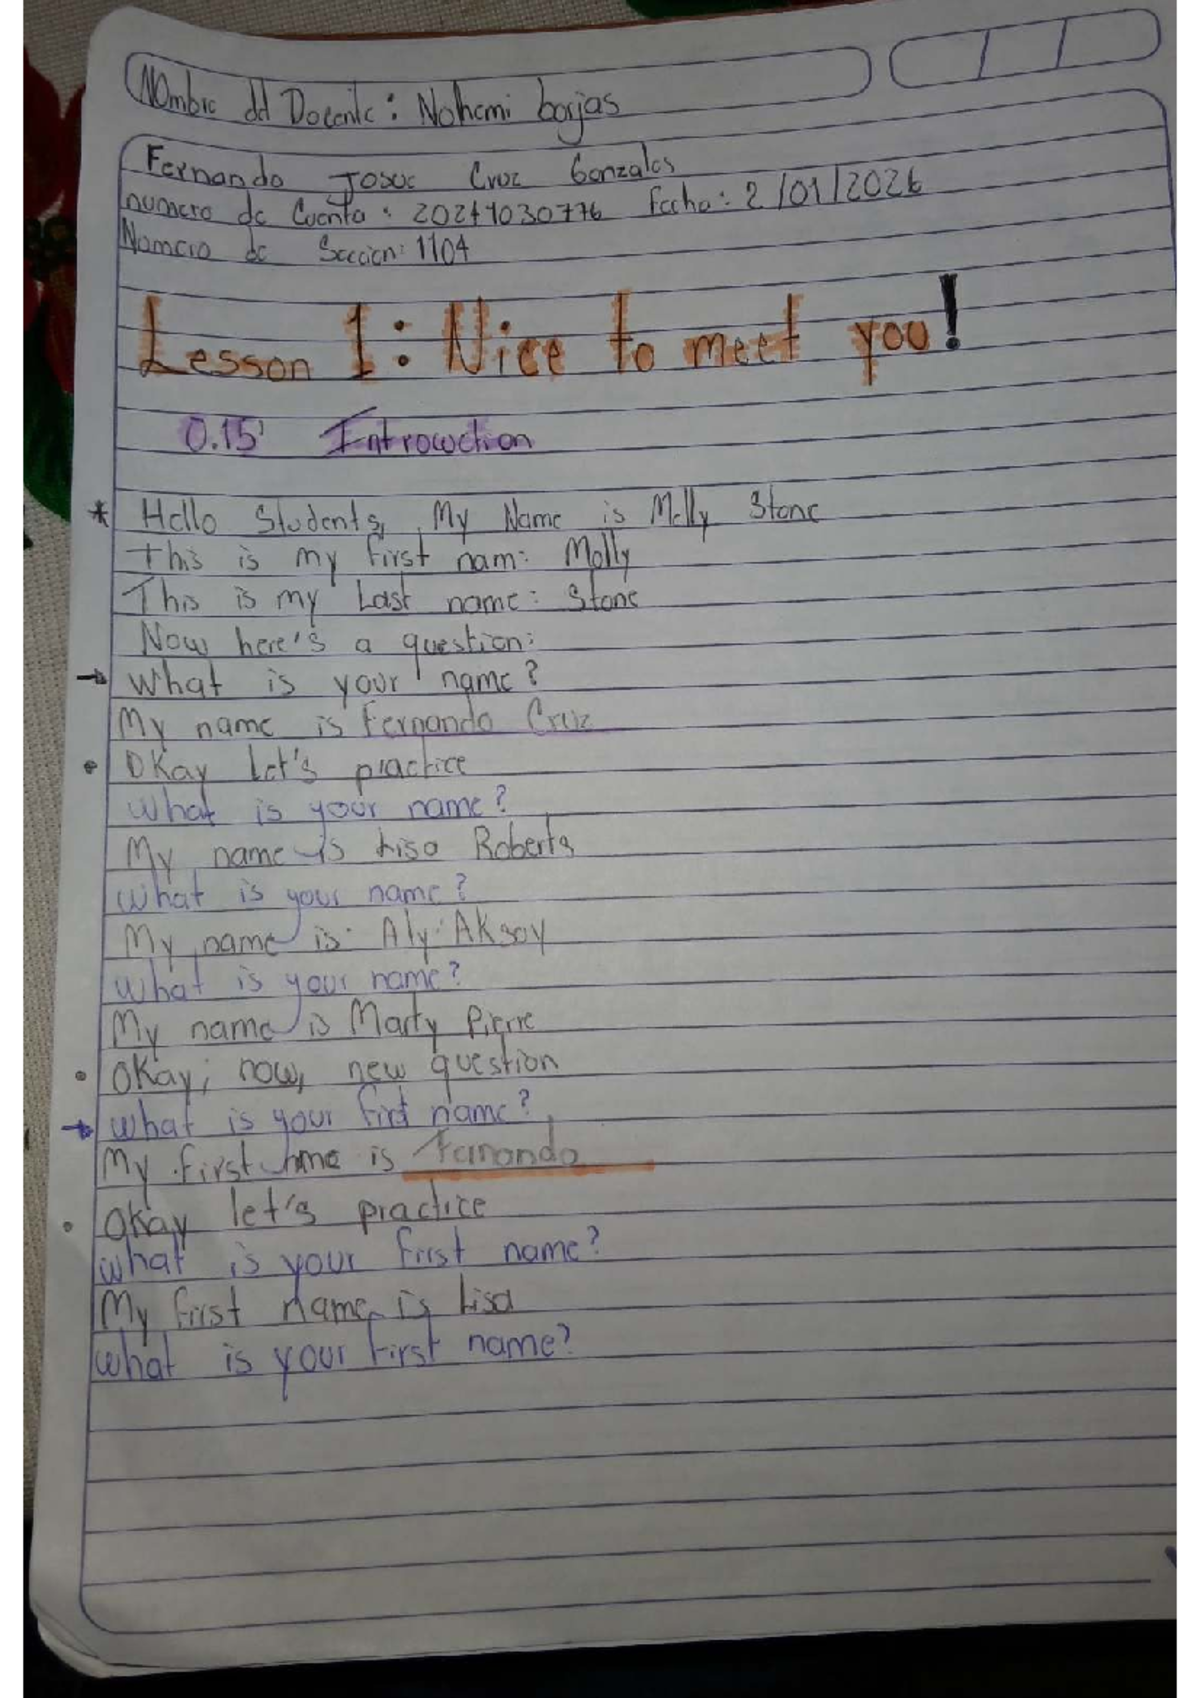 Nombre del Docente: Nohemi borjas
Fernando Josue Cruz Gonzales
numero de Cuenta: fecha: 2/01/2026
Numero de Seccion: 1104
Lesson 1: Nice to meet you!
0.15' Introwction
* Hello Students, My Name is Molly Stone
This is my first nam: Molly
This is my Last name: Stone
Now here's a question:
→ What is your name?
My name is Fernando Cruz
• Okay Let's practice
What is your name?
My name is Lisa Roberts
What is your name?
My name is Aly Aksoy
What is your name?
My name is Marty Pierre
• Okay, now, new question
→ What is your first name?
My first name is Fernando
• Okay let's practice
What is your first name?
My first name is Lisa
What is your first name?